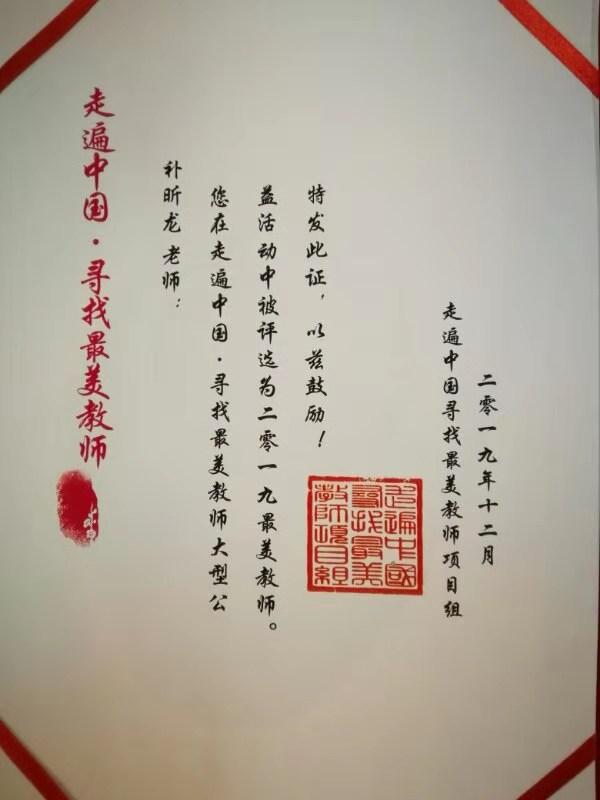 走遍中国·寻找最美教师
补昕龙老师：
您在走遍中国·寻找最美教师大型公
益活动中被评选为二零一九最美教师。
特发此证，以兹鼓励！
走遍中国寻找最美教师项目组
二零一九年十二月
走遍中國
尋找最美
教師項目組